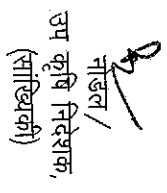 नोडल/
उप कृषि निदेशक,
(सांख्यिकी)